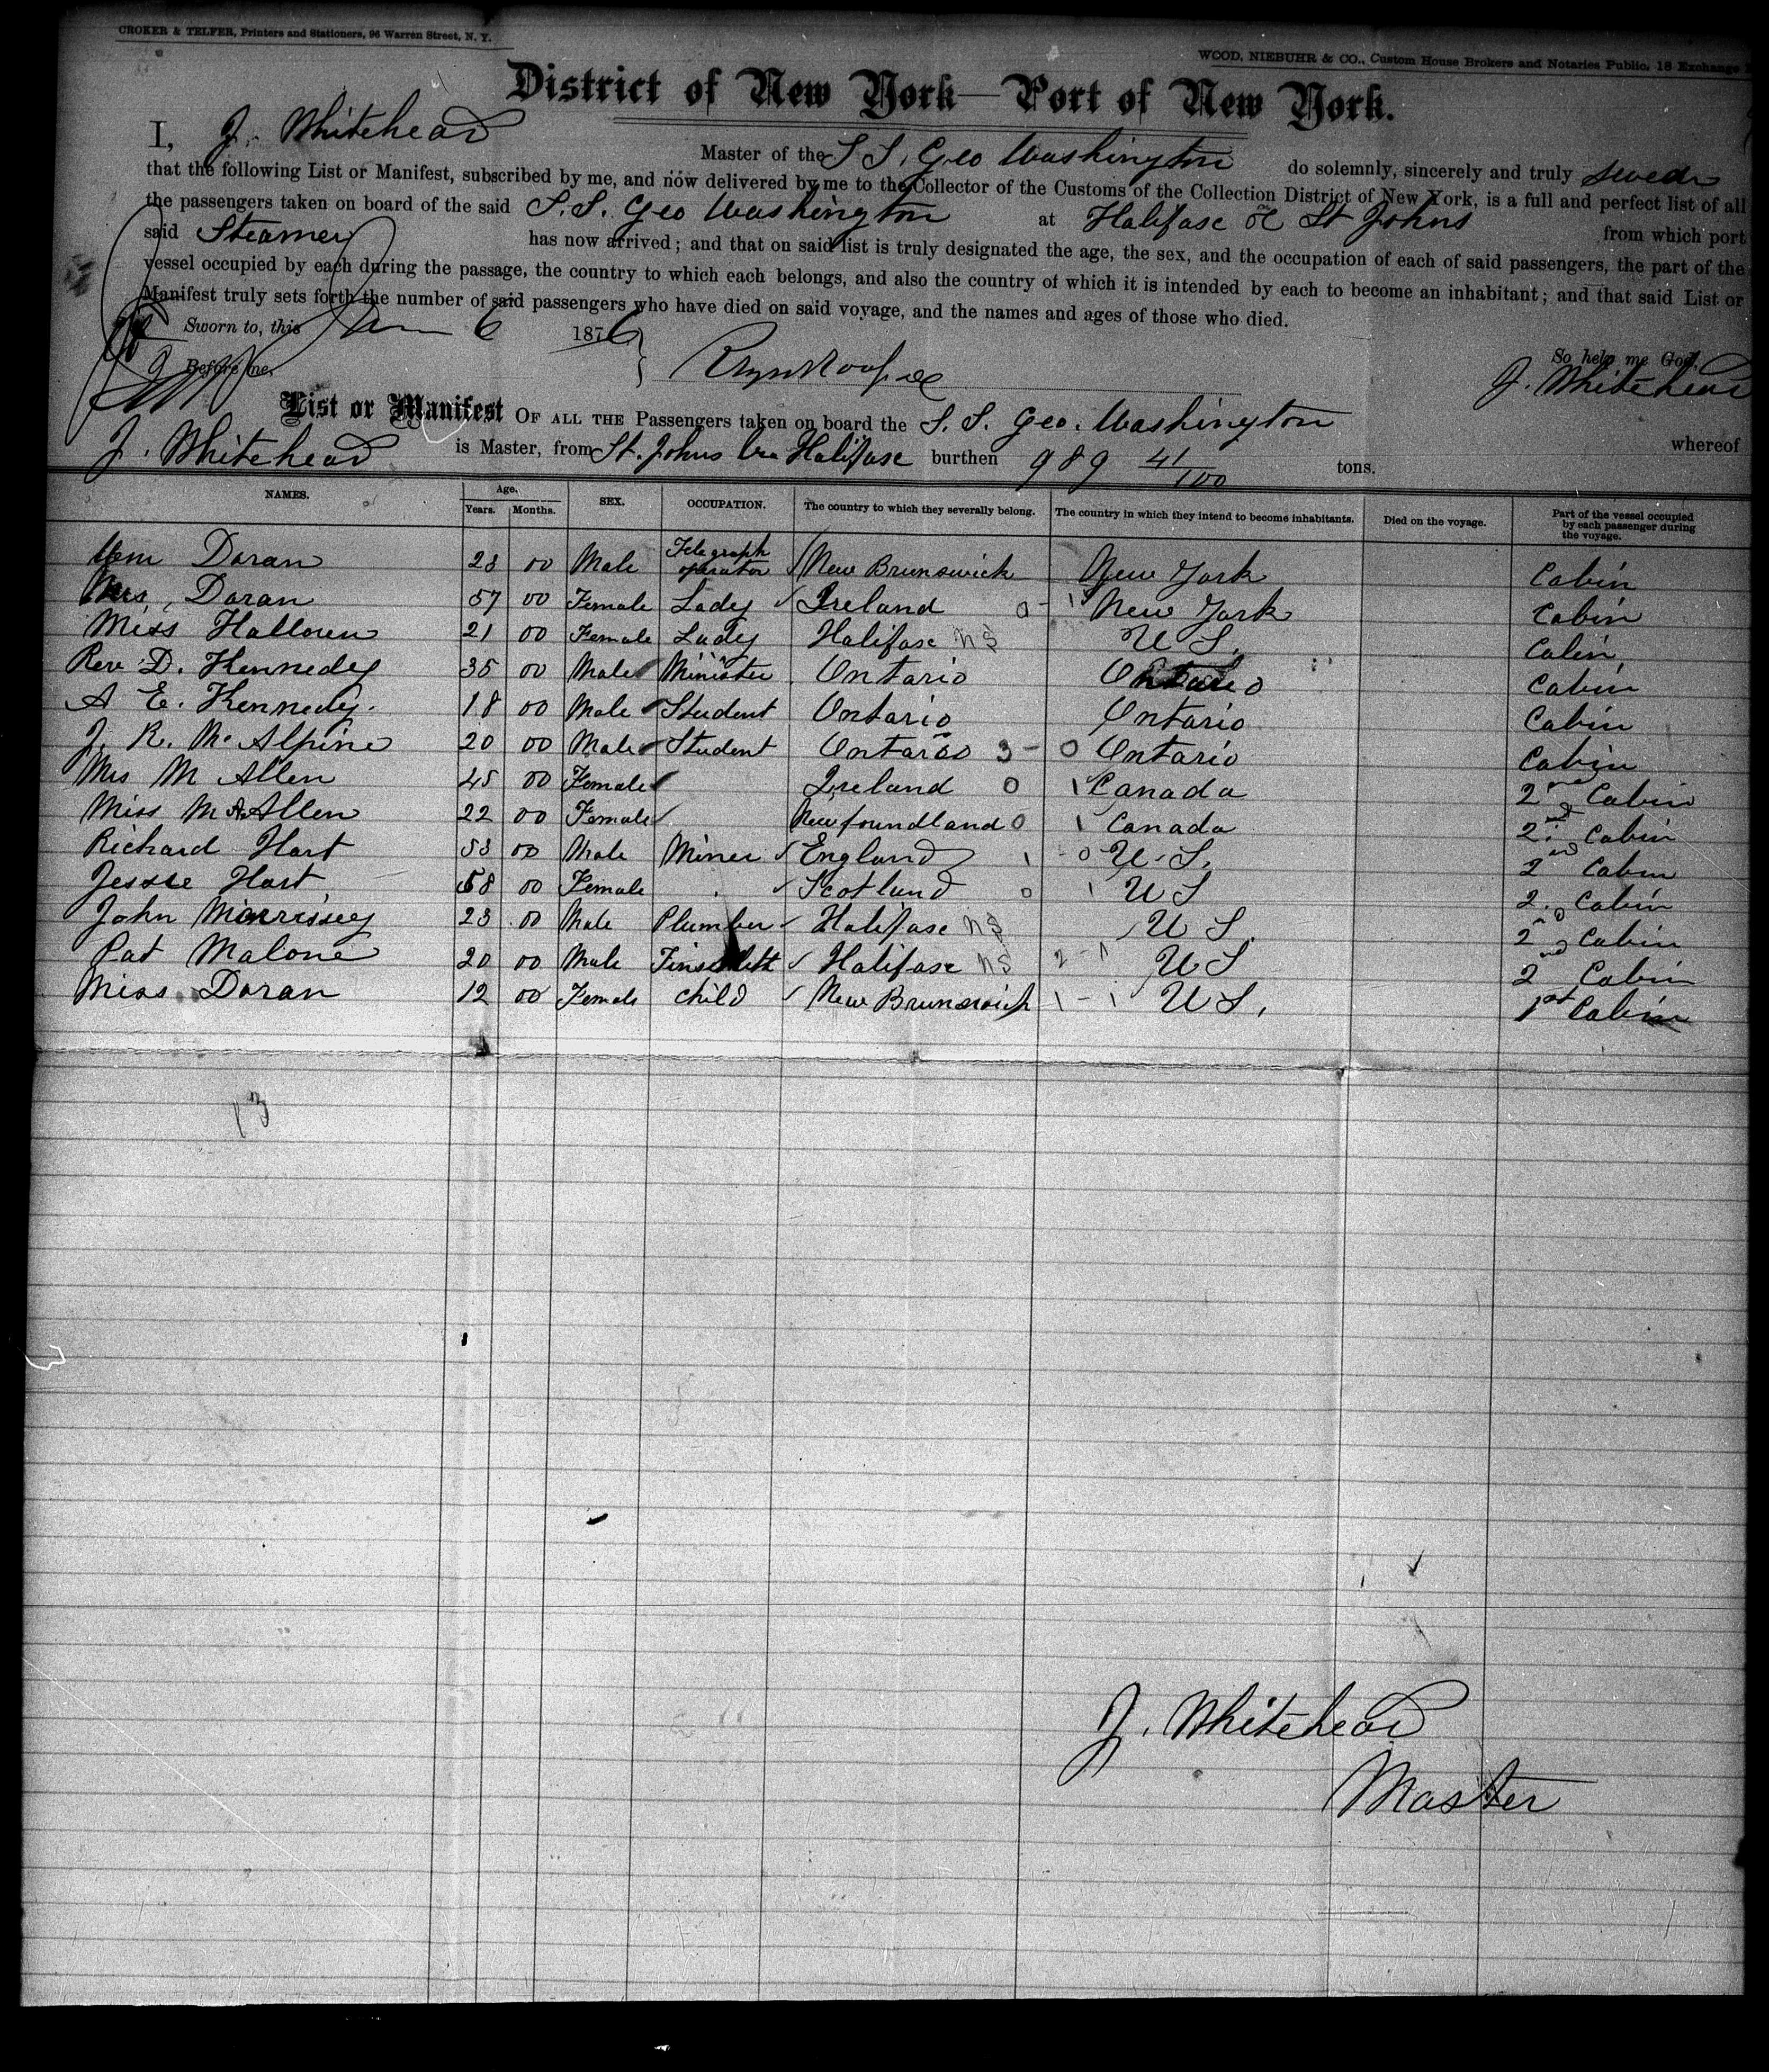 CROKER & TELFER, Printers and Stationers, 96 Warren Street, N. Y.
WOOD, NIEBUHR & CO., Custom House Brokers and Notaries Public, 18 Exchange
District of New York—Port of New York.
I, J. Whitehead Master of the S S. Geo Washington do solemnly, sincerely and truly swear
that the following List or Manifest, subscribed by me, and now delivered by me to the Collector of the Customs of the Collection District of New York, is a full and perfect list of all
the passengers taken on board of the said S. S. Geo Washington at Halifax & St Johns from which port
said Steamer has now arrived; and that on said list is truly designated the age, the sex, and the occupation of each of said passengers, the part of the
vessel occupied by each during the passage, the country to which each belongs, and also the country of which it is intended by each to become an inhabitant; and that said List or
Manifest truly sets forth the number of said passengers who have died on said voyage, and the names and ages of those who died.
Sworn to, this 6 1876 So help me God,
Before me, J. Whitehead
List or Manifest OF ALL THE Passengers taken on board the S. S. Geo. Washington whereof
J. Whitehead is Master, from St. Johns Via Halifax burthen 989 41/100 tons.
NAMES. Age. Years. Months. SEX. OCCUPATION. The country to which they severally belong. The country in which they intend to become inhabitants. Died on the voyage. Part of the vessel occupied by each passenger during the voyage.
Wm Doran 23 00 Male Telegraph operator New Brunswick New York Cabin
Mrs. Doran 57 00 Female Lady Ireland 0 - 1 New York Cabin
Miss Halloren 21 00 Female Lady Halifax NS U S. Cabin,
Rev D. Kennedy 35 00 Male Minister Ontario Ontario Cabin
A E. Kennedy. 18 00 Male Student Ontario Ontario Cabin
J. R. McAlpine 20 00 Male Student Ontario 3 - 0 Ontario Cabin
Mrs M Allen 45 00 Female Ireland 0 1 Canada 2nd Cabin
Miss M A Allen 22 00 Female Newfoundland 0 1 Canada 2nd Cabin
Richard Hart 53 00 Male Miner England 1 - 0 U. S. 2nd Cabin
Jessie Hart 58 00 Female Scotland 0 1 U S 2 Cabin
John Morrissey 23 00 Male Plumber Halifax NS U S. 2nd Cabin
Pat Malone 20 00 Male Tinsmith Halifax NS 2 - 1 U S 2nd Cabin
Miss Doran 12 00 Female child New Brunswick 1 - 1 U S. 1st Cabin
13
J. Whitehead
Master